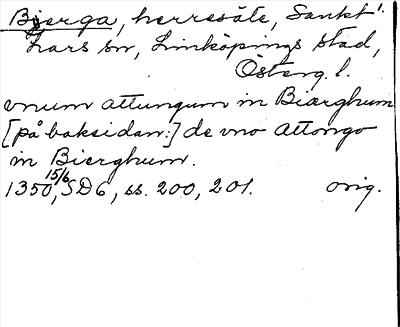 Bjerga, herresäte, Sankt
Lars sn, Linköpings stad,
Österg. l.
vnum attungum in Biærghum
[på baksidan:] de vno attongo
in Bierghum.
1350 15/6, SD6, ss. 200, 201. orig.